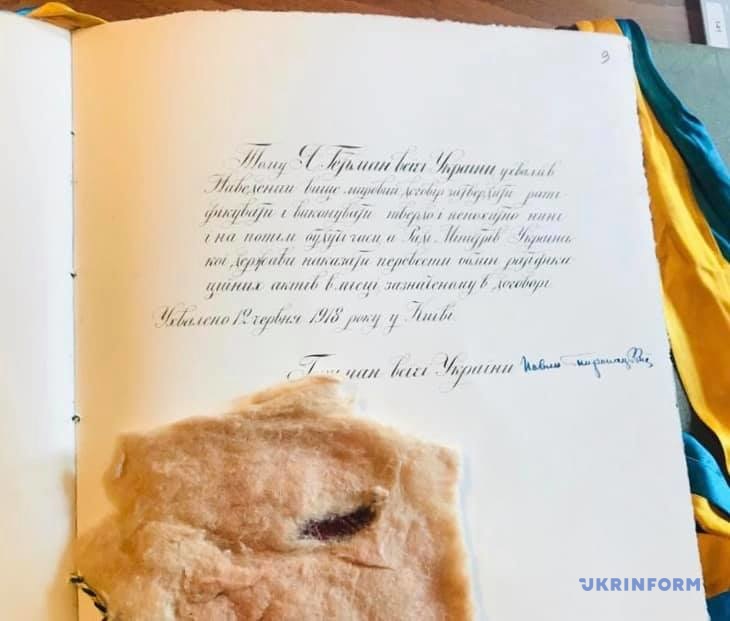 9
Тому Я Гетьман всієї України ухвалив
Наведений више мировий договір затвердити раті-
фікувати і виконувати твердо і непохитно нині
і на потім будучі часи, а Раді Міністрів Українсь-
кої держави наказати перевести обмін ратіфіка-
ційних актів в місці зазначеному в договорі
Ухвалено 12 червня 1918 року у Київі
Гетьман всієї України Павло Скоропадський
UKRINFORM